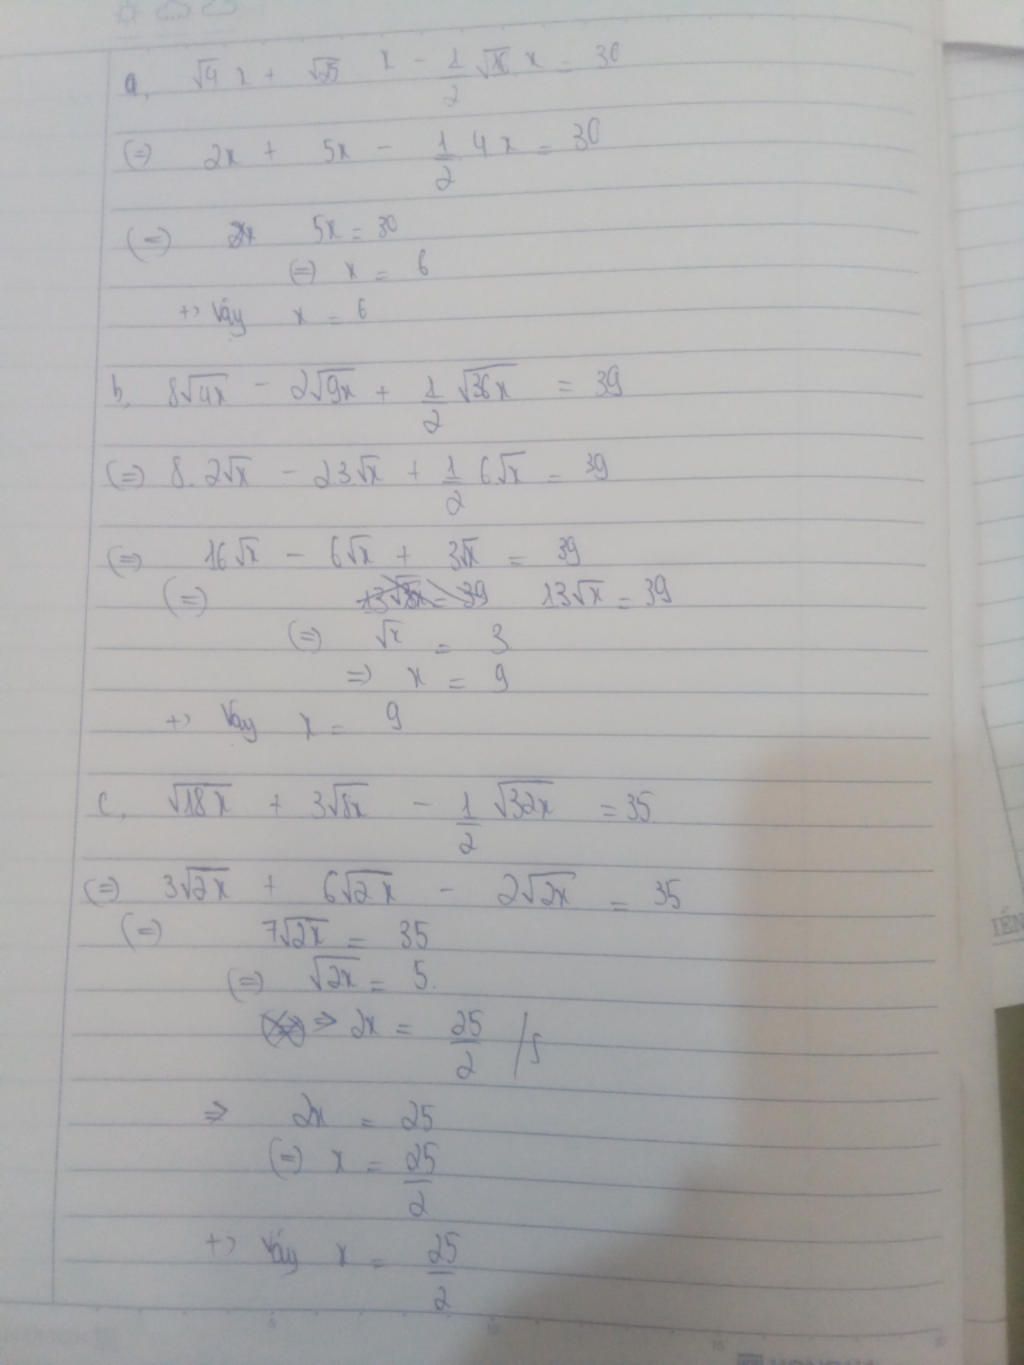 a, √4 x + √25 x - 1/2 √16 x = 30
(=) 2x + 5x - 1/2 4x = 30
(=) 5x = 30
(=) x = 6
+> Vậy x = 6
b, 8√4x - 2√9x + 1/2 √36x = 39
(=) 8. 2√x - 2 3√x + 1/2 6√x = 39
(=) 16√x - 6√x + 3√x = 39
(=) 13√x = 39
(=) √x = 3
=> x = 9
+> Vậy x = 9
c, √18x + 3√8x - 1/2 √32x = 35
(=) 3√2x + 6√2x - 2√2x = 35
(=) 7√2x = 35
(=) √2x = 5.
=> 2x = 25/2 /s
=> 2x = 25
(=) x = 25/2
+> Vậy x = 25/2